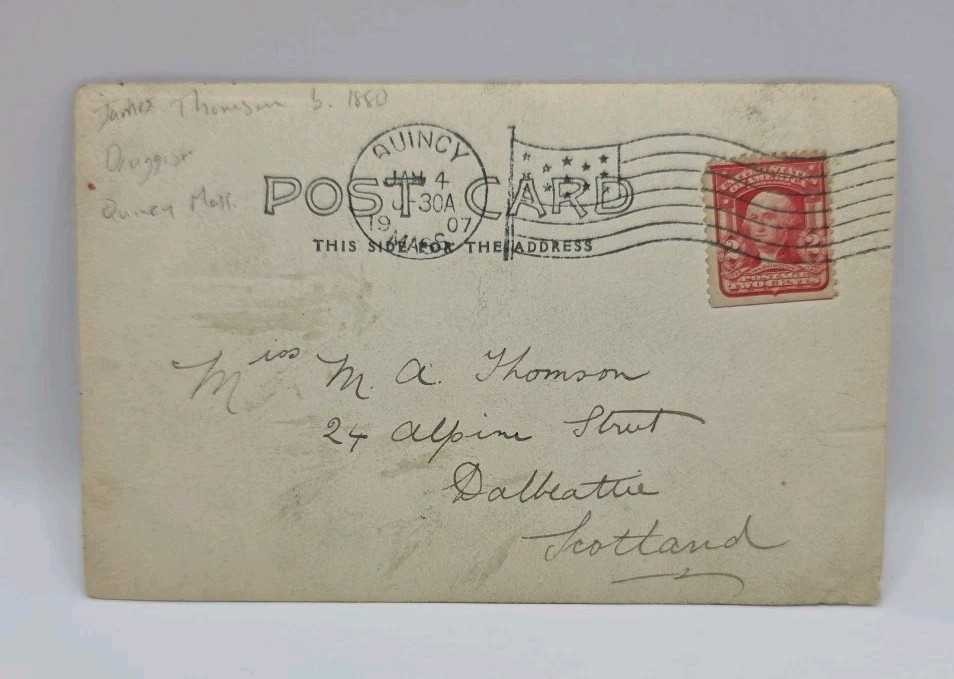 James Thomson b. 1880
Druggist
Quincy Mass.
QUINCY
JAN 4
-30A
19 07
MASS.
POST CARD
THIS SIDE FOR THE ADDRESS
2 2
POSTAGE
TWO CENTS
Miss M. A. Thomson
24 Alpine Street
Dalbeattie
Scotland